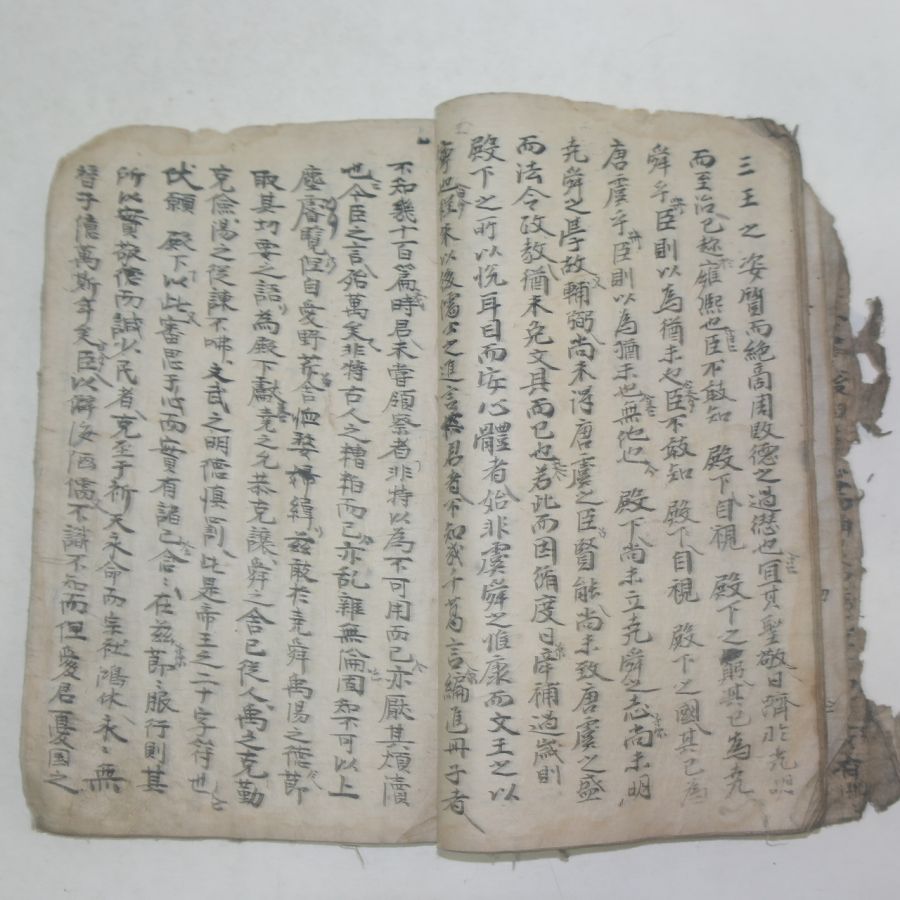 三王之姿質而絶商周敗德之過愆也宜其聖敬日躋非堯
而至治已極雍熙也臣不敢知 殿下自視 殿下之躬其已為堯
舜乎臣則以為猶未也臣不敢知 殿下自視 殿下之國其已為
唐虞乎臣則以為猶未也無他也 殿下尚未立堯舜之志尚未明
堯舜之學故輔弼尚未得唐虞之臣賢能尚未致唐虞之盛
而法令政教猶未免文具而已也若此而因循度日率補過歲則
殿下之所以悅耳目而安心體者始非虞舜之惟康而文王之以
以後儒士之進言於君者不知幾千萬言編進冊子者
不知幾十百篇時君未嘗領察者非特以為不可用而已亦厭其煩瀆
也今臣之言殆萬矣非特古人之糟粕而已亦乱雜無倫固知不可以上
塵睿覽但自愛野芹合恤嫠婦緯茲敢於堯舜禹湯之德節
取其切要之語為殿下獻堯之允恭克讓舜之舍已從人禹之克勤
克儉湯之從諫不咈文武之明德慎罰此是帝王之二十字符也
伏願 殿下以此審思于心而實有諸已念念在茲節節服行則其
所以實敬德而諴小民者克至于祈天永命而宗社鴻休永永無
替于億萬斯年矣臣以 儒不識不知而但愛君憂国之